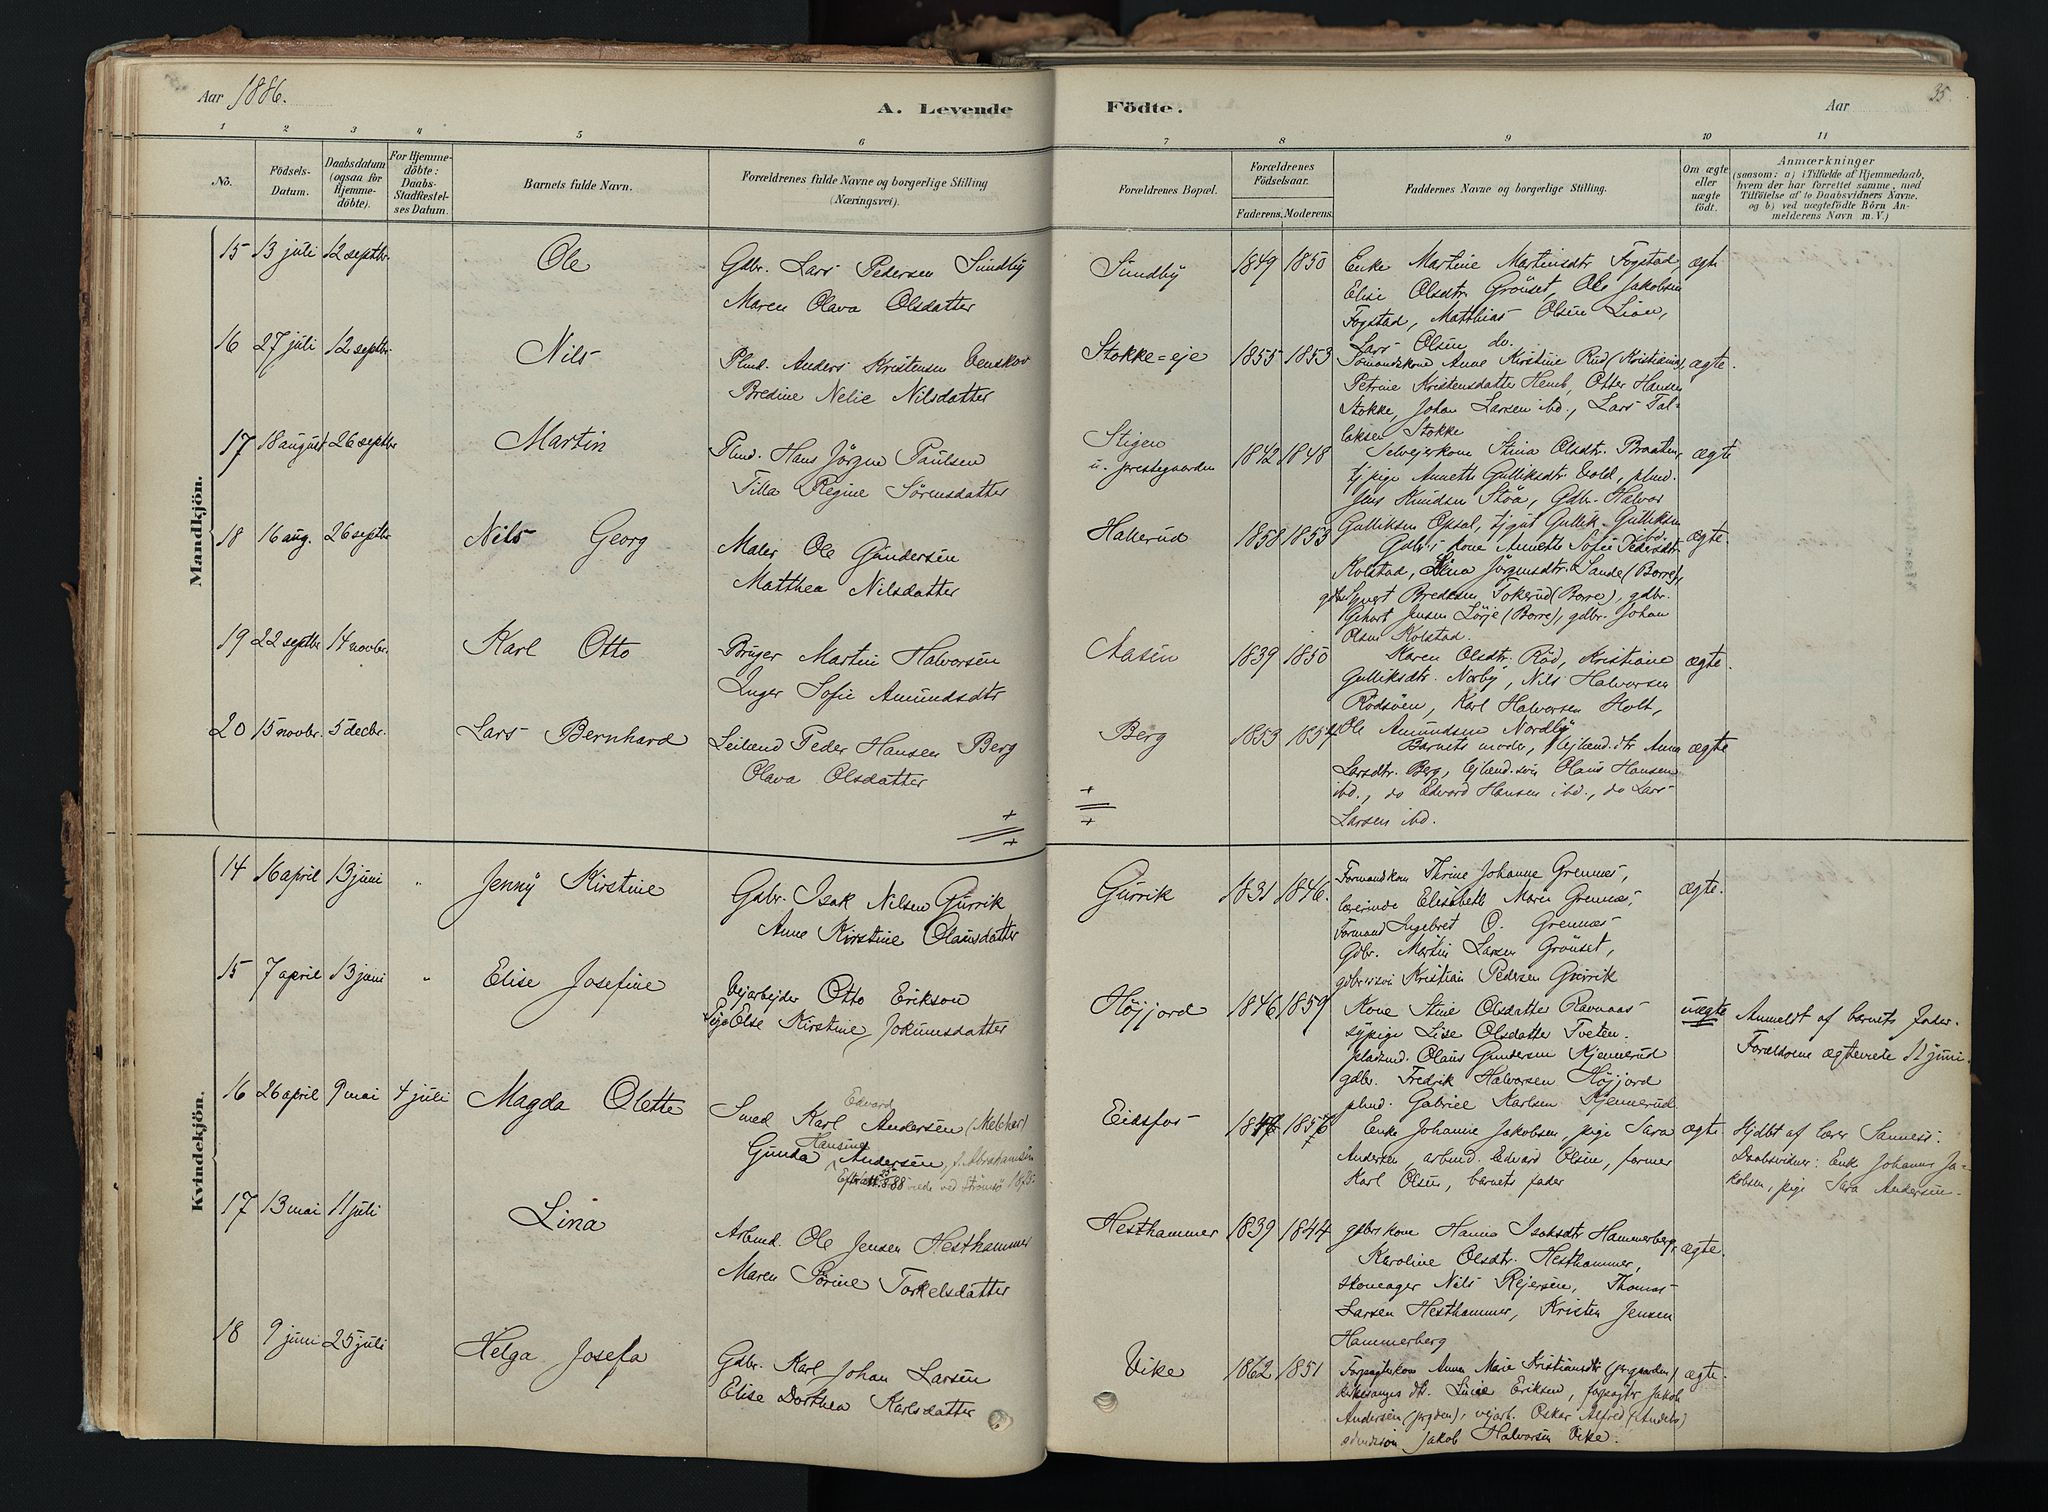 Aar 1886.
A. Levende
Födte.
Aar
35.
1 2 3 4 5 6 7 8 9 10 11
No.
Födsels-Datum.
Daabsdatum (ogsaa for Hjemmedöbte).
For Hjemmedöbte: Daabs-Stadfæstelses Datum.
Barnets fulde Navn.
Forældrenes fulde Navne og borgerlige Stilling (Næringsvei).
Forældrenes Bopæl.
Forældrenes Födselsaar.
Faderens. Moderens.
Faddernes Navne og borgerlige Stilling.
Om ægte eller uægte födt.
Anmærkninger
(saasom: a) i Tilfælde af Hjemmedaab,
hvem der har forrettet samme, med
Tilföielse af to Daabsvidners Navne.
og b) ved uægtefödte Börn An-
melderens Navn m. V.)
Mandkjön.
15 13 juli 12 septbr. Ole
Gdbr. Lars Pedersen Sundby
Maren Olava Olsdatter
Sundby 1849 1850
Enke Martine Martinsdtr Fogstad,
Elise Olsdtr. Grönset, Ole Jakobsen
Fogstad, Matthias Olsen Lion,
Lars Olsen do.
ægte
16 27 juli 12 septbr. Nils
Plmd. Anders Kristensen
Bredine Nelie Nilsdatter
Stokke=eje 1855 1853
Anne Kirstine Rud (Kristiania),
Petrine Kristensdatter Hemb, Otter Hansen
Stokke, Johan Larsen ibd., Lars Tal-
laksen Stokke
ægte.
17 18 august 26 septbr Martin
Plmd. Hans Jörgen Paulsen
Tilla Regine Sörensdatter
Stigen
u. prestegaarden 1842 1848
Selvejerkone Stina Olsdtr. Braaten,
tj. pige Annette Gulliksdtr. Vold, plmd.
Jens Knudsen Stöa, Gdbr. Halvor
Gulliksen Opsal, tjgut Gullik Gulliksen
ibd.
ægte
18 16 aug. 26 septbr Nils Georg
Maler Ole Gundersen
Matthea Nilsdatter
Hallerud 1858 1853
Gdbr's kone Annette Sofie Pedersdtr.
Kolstad, Lina Jörgensdtr. Sande (Borre),
gdbr Syvert Bredesen Tokerud (Borre), gdbr.
Gehart Jensen Lörje (Borre), gdbr. Johan
Olsen Kolstad.
ægte.
19 22 septbr 14 novbr. Karl Otto
Bruger Martin Halvorsen
Inger Sofie Amundsdtr
Aasen 1839 1850
Karen Olsdtr. Röd, Kristiane
Gulliksdtr. Norby, Nils Halvorsen
Rödsöen, Karl Halvorsen Holt,
Ole Amundsen Nordby
ægte.
20 15 novbr. 5 decbr. Lars Bernhard
Leilend Peder Hansen Berg
Olava Olsdatter
Berg 1853 1854
Barnets moder, lejlend.dtr Anna
Larsdtr. Berg, lejlend.sön Olaus Hansen
ibd., do Edvard Hansen ibd., do Lars
Larsen ibd.
ægte
Kvindekjön.
14 16 april 13 juni " Jenny Kirstine
Gdbr. Isak Nilsen Gurrik
Anne Kirstine Olausdatter
Gurrik 1831 1846.
Formandkone Thrine Johanne Grennes,
lærerinde Elisabeth Marie Grennes,
Formand Ingebret O. Grennes
Gdbr. Martin Larsen Grönset,
gdbrsön Kristian Pedersen Gurrik
ægte.
15 7 april 13 juni " Elise Josefine
Vejarbejder Otto Erikson
Pige Else Kirstine Jokumsdatter
Höjjord 1846 1859
Kone Stine Olsdatter Ravnaas
sypige Lise Olsdatter Tveten.
pladsmd. Olaus Gundersen Kjennerud
gdbr. Fredrik Halvorsen Höjjord
plmd. Gabriel Karlsen Kjennerud.
uægte
Anmeldt af barnets fader.
Forældrene ægteviede 11 juni.
16 26 april 9 mai 4 juli Magda Olette
Edvard
Smed Karl Andersen (Melcher)
Hansine
Gunda Andersen, f. Abrahamsen
viede ved Strömsö 1875
Eidsfos 1846 1856
Enke Johanne Jakobsen, pige Sara
Andersen, arbmd. Edvard Olsen, former
Karl Olsen, barnets fader
ægte
Hjdbt af lærer Sannes:
Daabsvidner: Enke Johanne Ja-
kobsen, pige Sara Andersen.
17 13 mai 11 juli Lina
Arbmd. Ole Jensen Hesthammer
Maren Sörine Torkelsdatter
Hesthammer 1839 1844
gdbrskone Hanna Isaksdtr Hammerberg,
Karoline Olsdtr. Hesthammer,
skomager Nils Rejersen, Thomas
Larsen Hesthammer, Kristen Jensen
Hammerberg
ægte.
18 9 juni 25 juli Helga Josefa
Gdbr. Karl Johan Larsen
Elise Dorthea Karlsdatter
Vike 1862 1851
Forpagterkone Anne Marie Kristiansdtr (prgaarden),
kirkesangers dtr. Lucie Eriksen, forpagter Jakob
Andersen (prgden), vejarb. Oskar Alfred (Andebo)
Jakob Halvorsen Vike.
ægte.